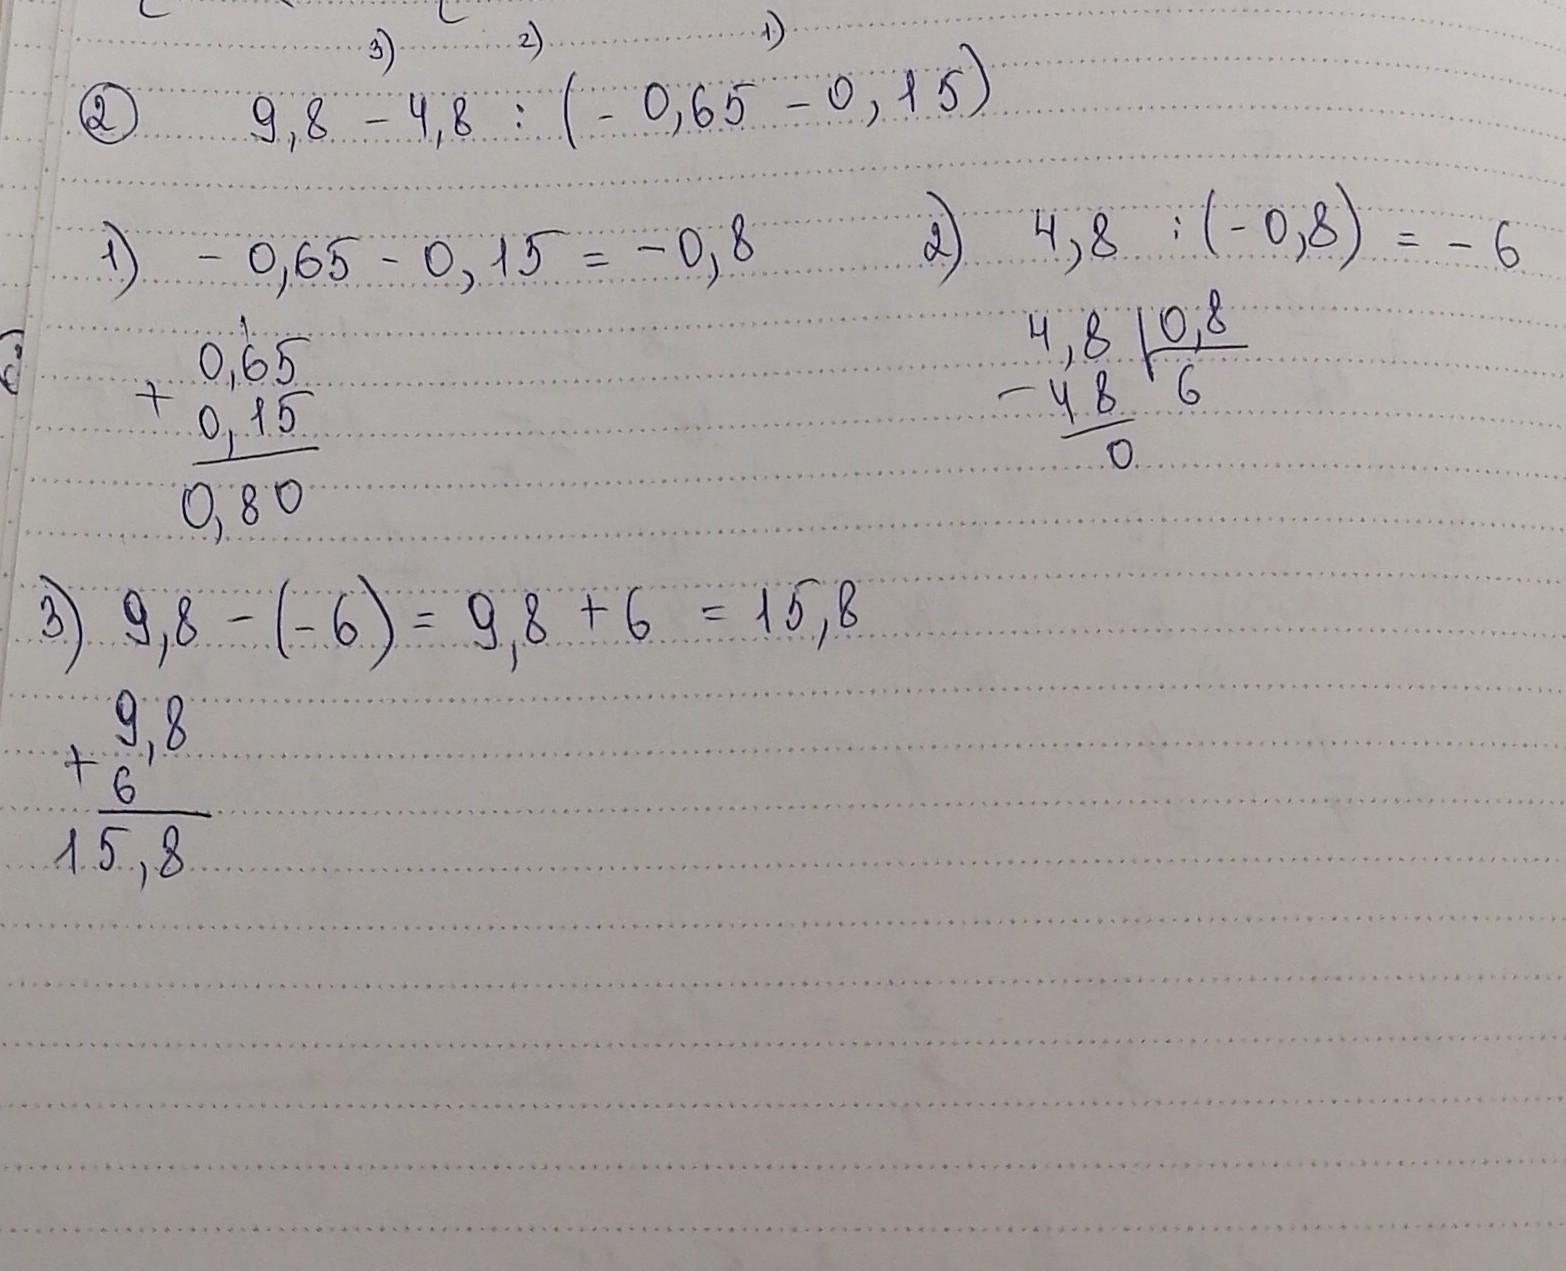 3) 2) 1)
② 9,8 - 4,8 : (- 0,65 - 0,15)
1) - 0,65 - 0,15 = - 0,8
2) 4,8 : (- 0,8) = - 6
1
0,65
+
0,15
0,80
4,8 0,8
- 48 6
0
3) 9,8 - (- 6) = 9,8 + 6 = 15,8
9,8
+
6
15,8